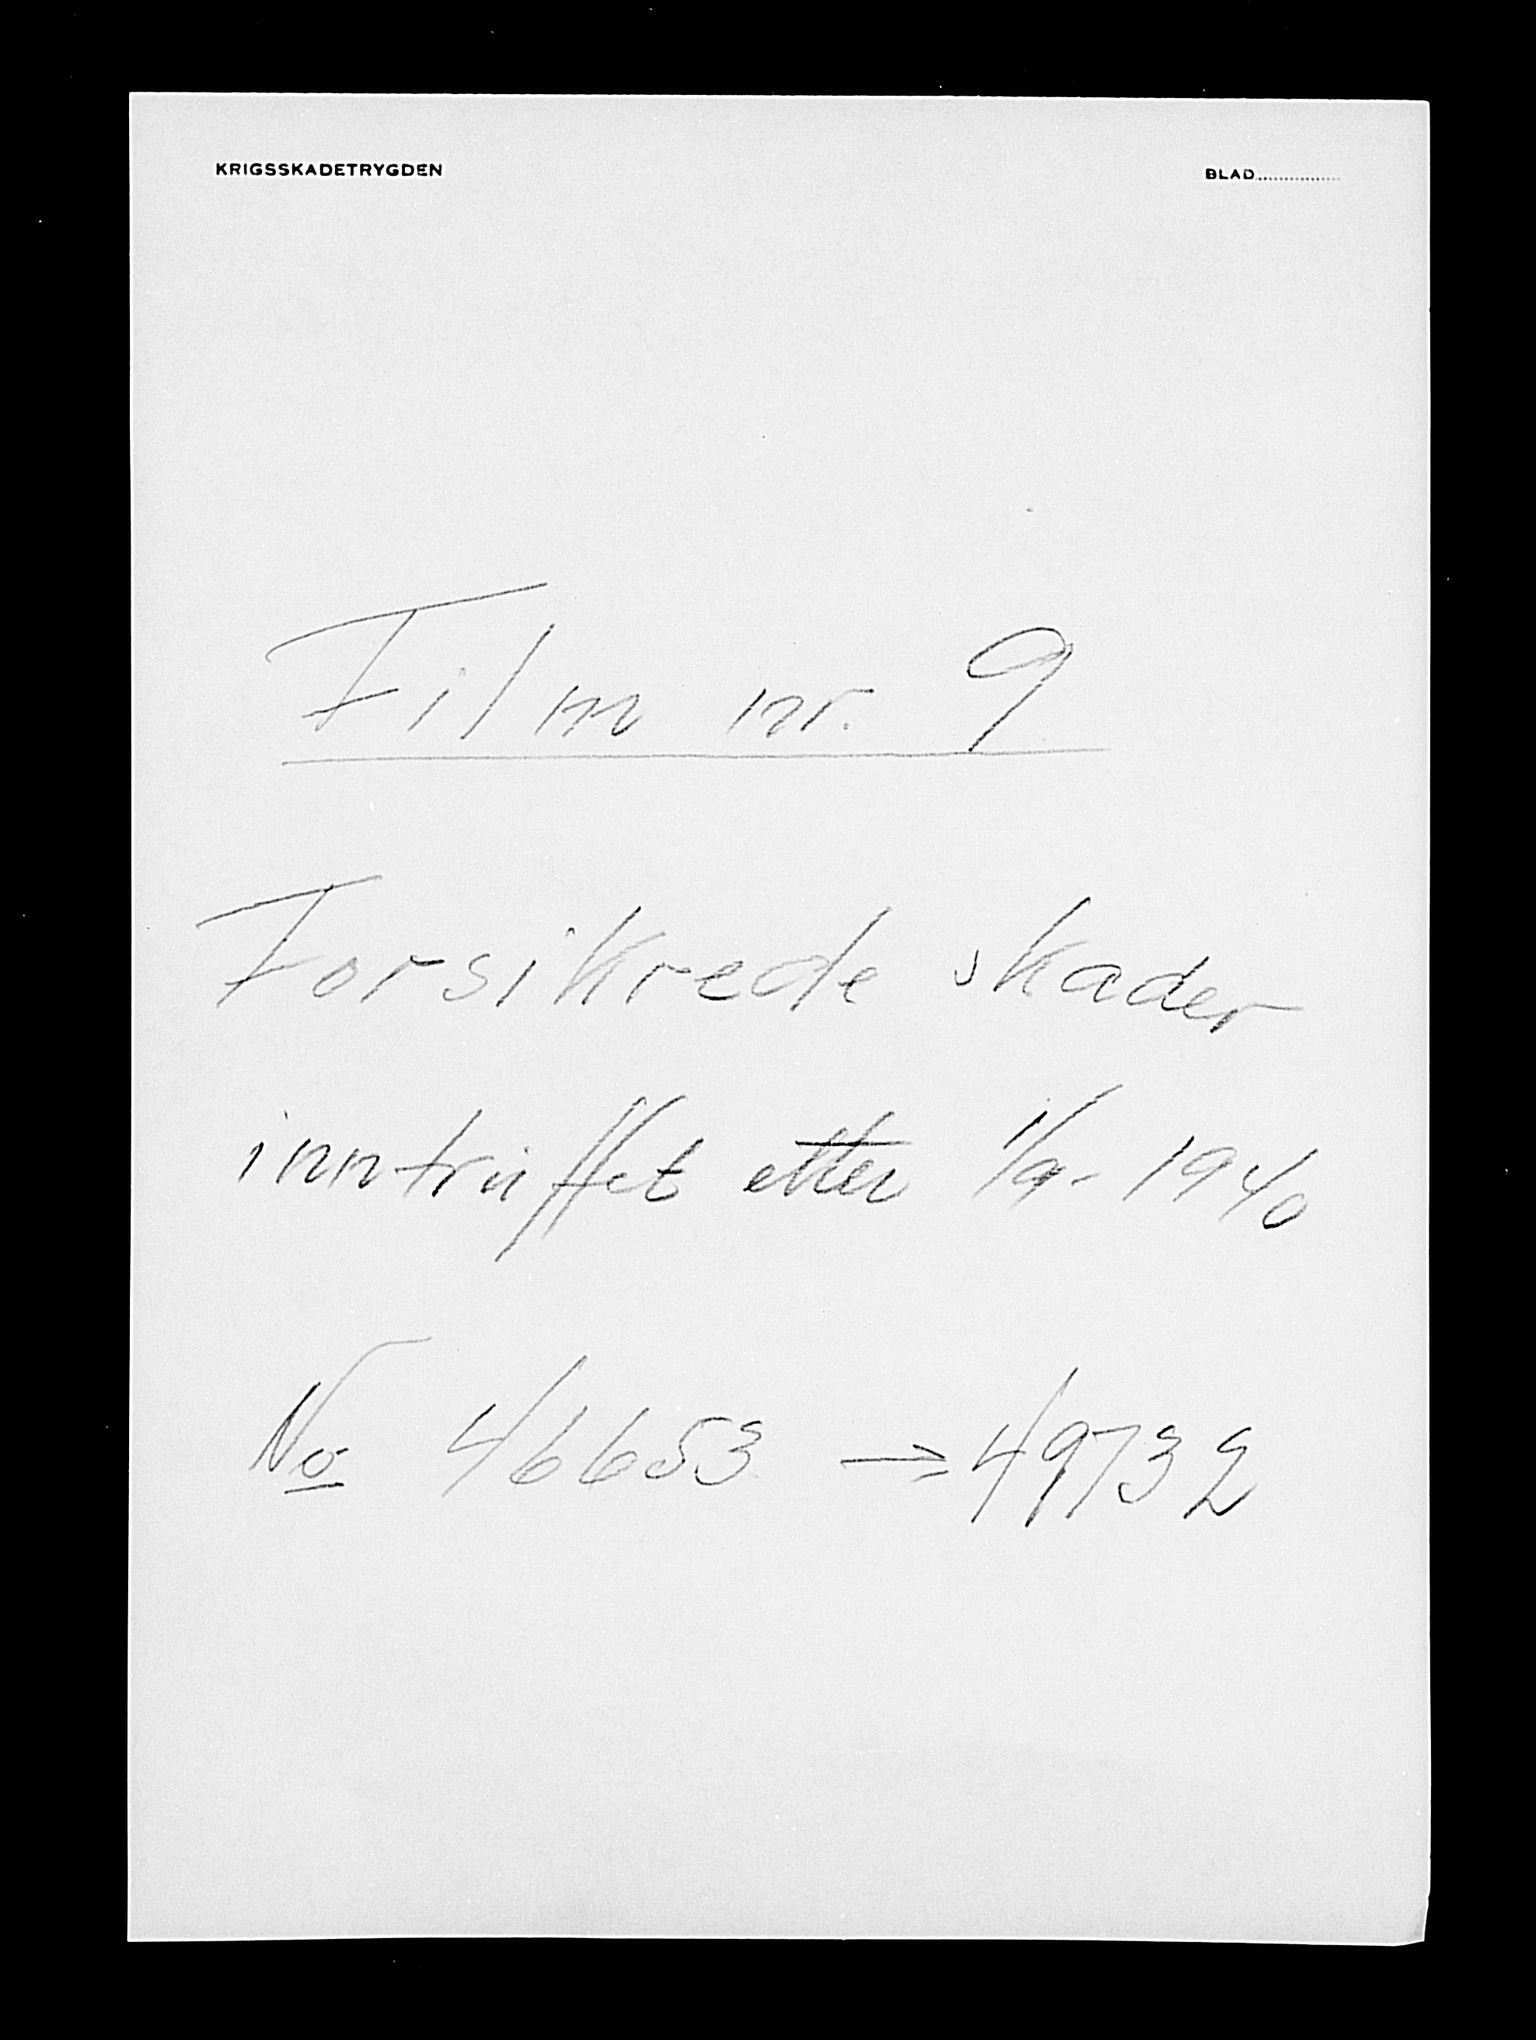 KRIGSSKADETRYGDEN BLAD................
Film nr. 9
Forsikrede skader
inntruffet etter 1/9- 1940
No 46653 → 49732